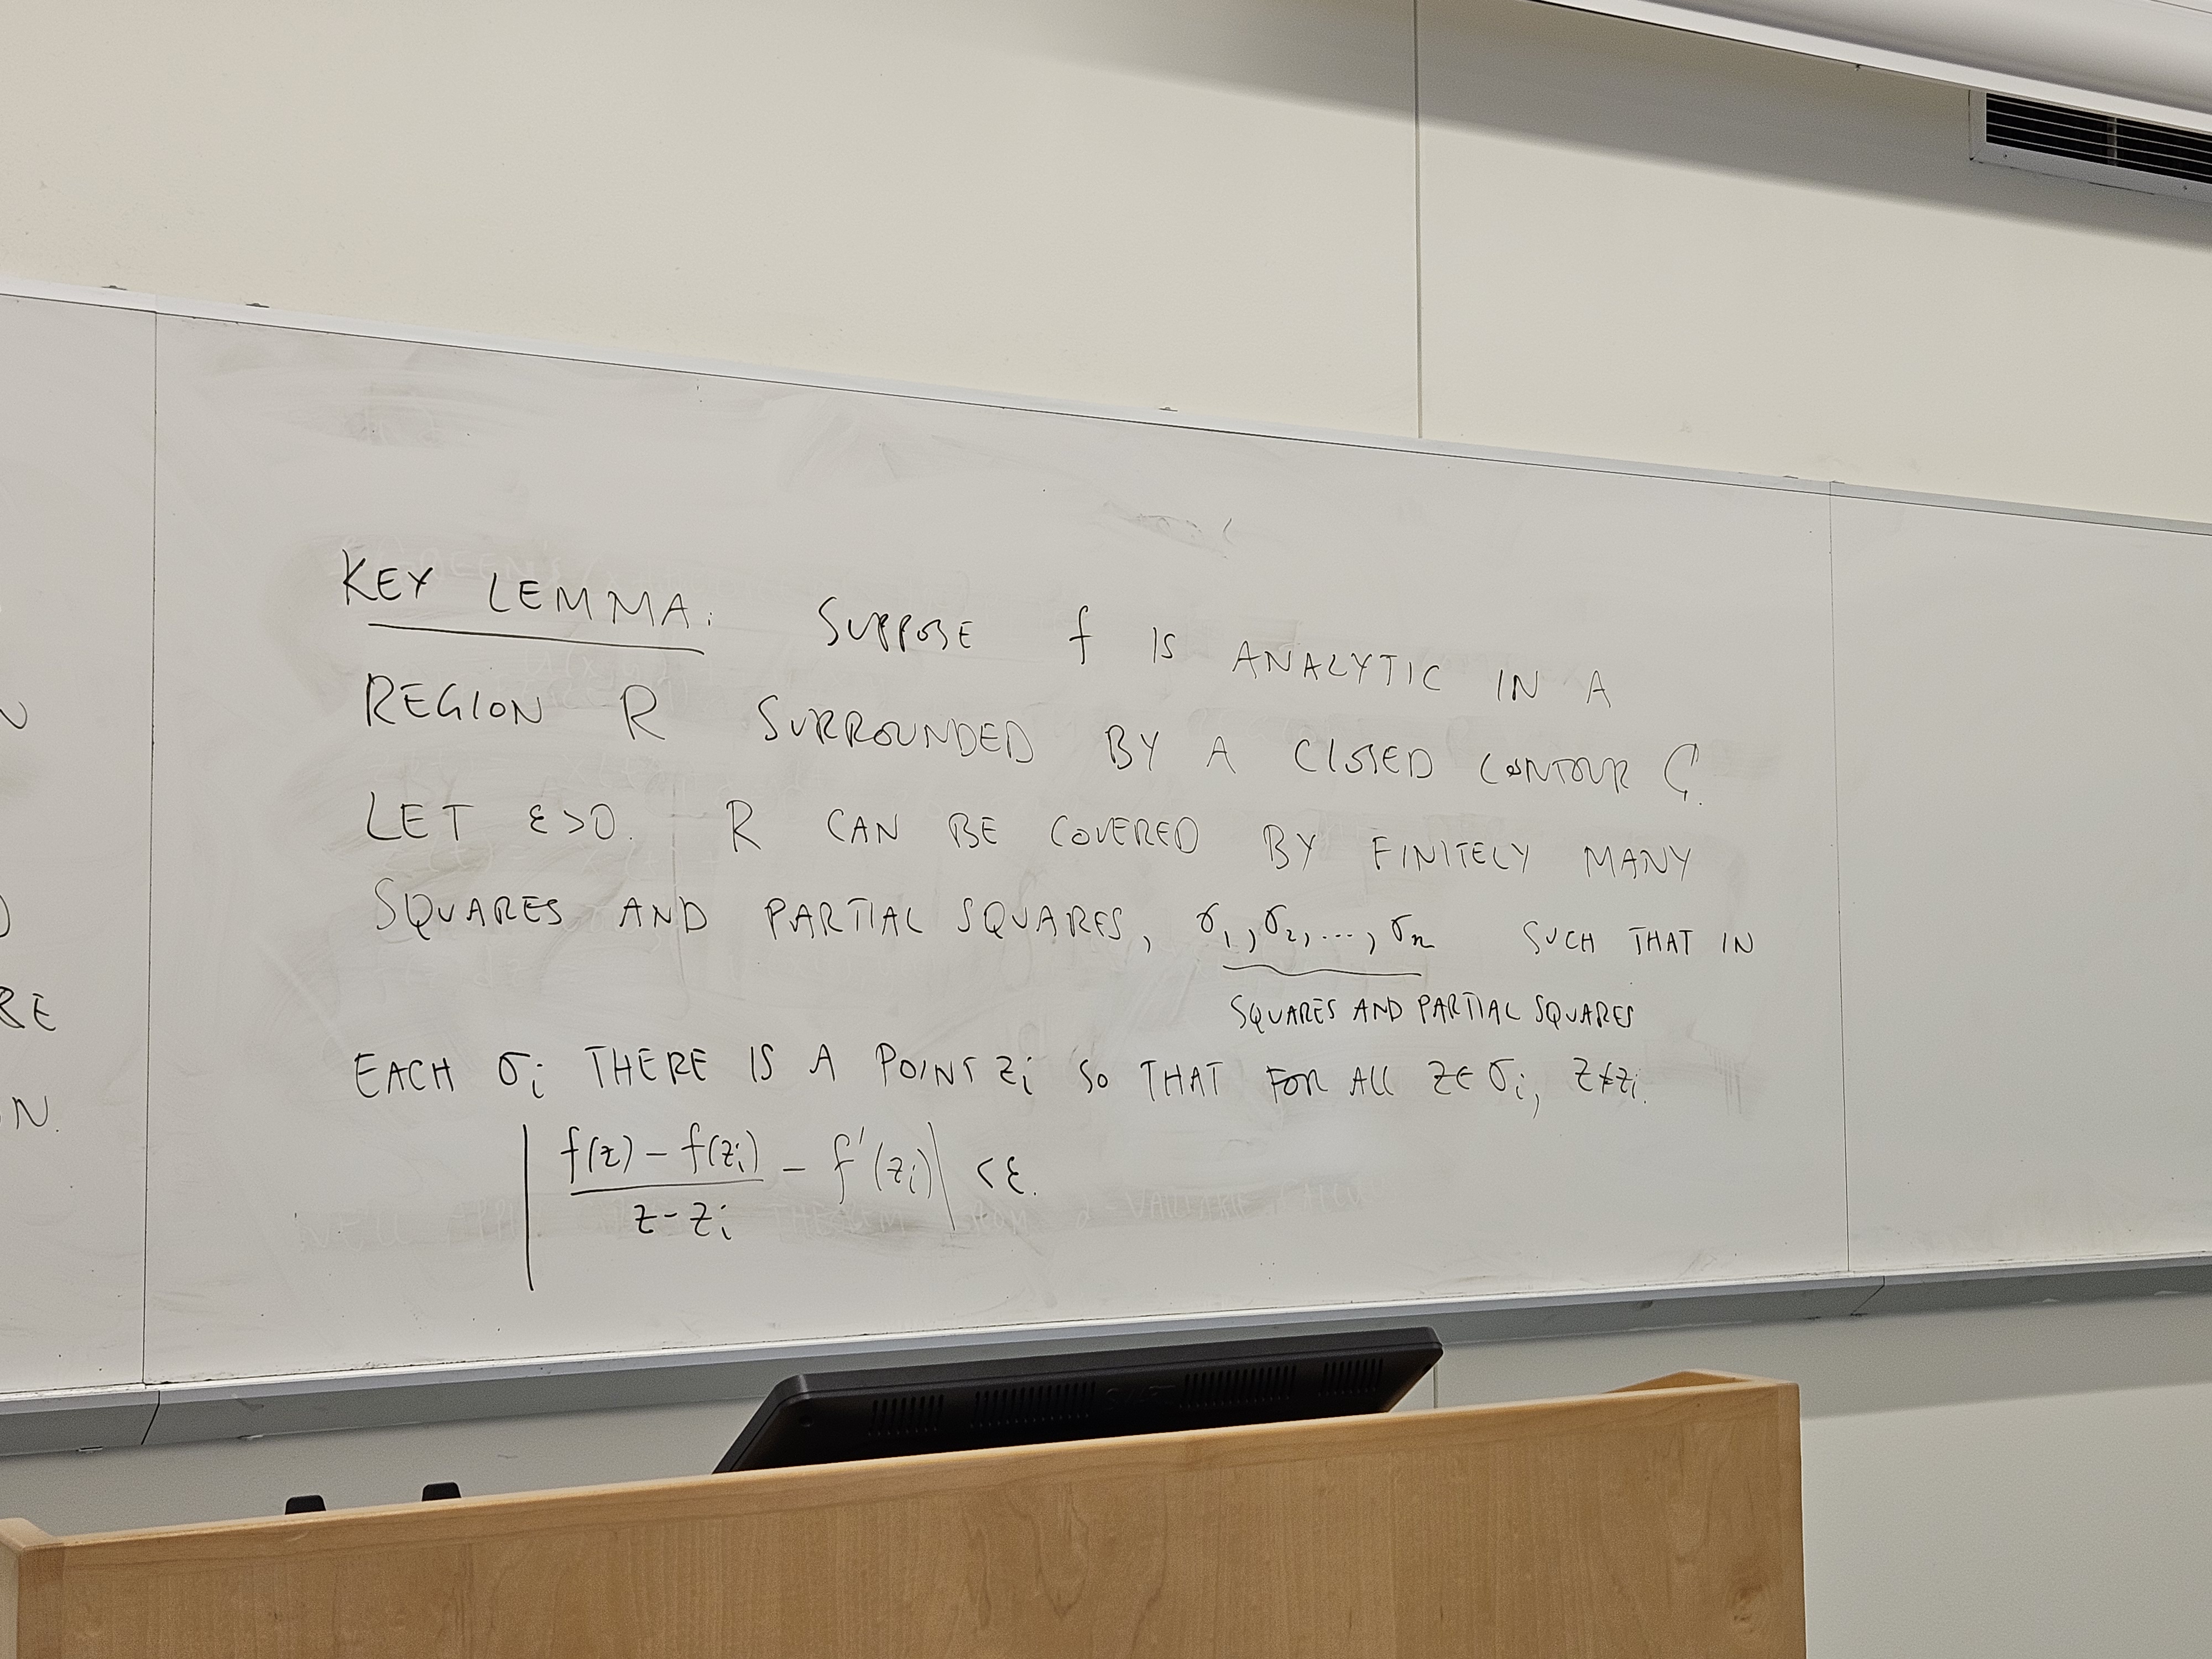 KEY LEMMA: SUPPOSE f IS ANALYTIC IN A
REGION R SURROUNDED BY A CLOSED CONTOUR C.
LET ε>0. R CAN BE COVERED BY FINITELY MANY
SQUARES AND PARTIAL SQUARES, σ₁, σ₂, ..., σₙ SUCH THAT IN
SQUARES AND PARTIAL SQUARES
EACH σᵢ THERE IS A POINT zᵢ SO THAT FOR ALL z∈σᵢ, z≠zᵢ.
| (f(z) - f(zᵢ))/(z - zᵢ) - f'(zᵢ) | < ε.